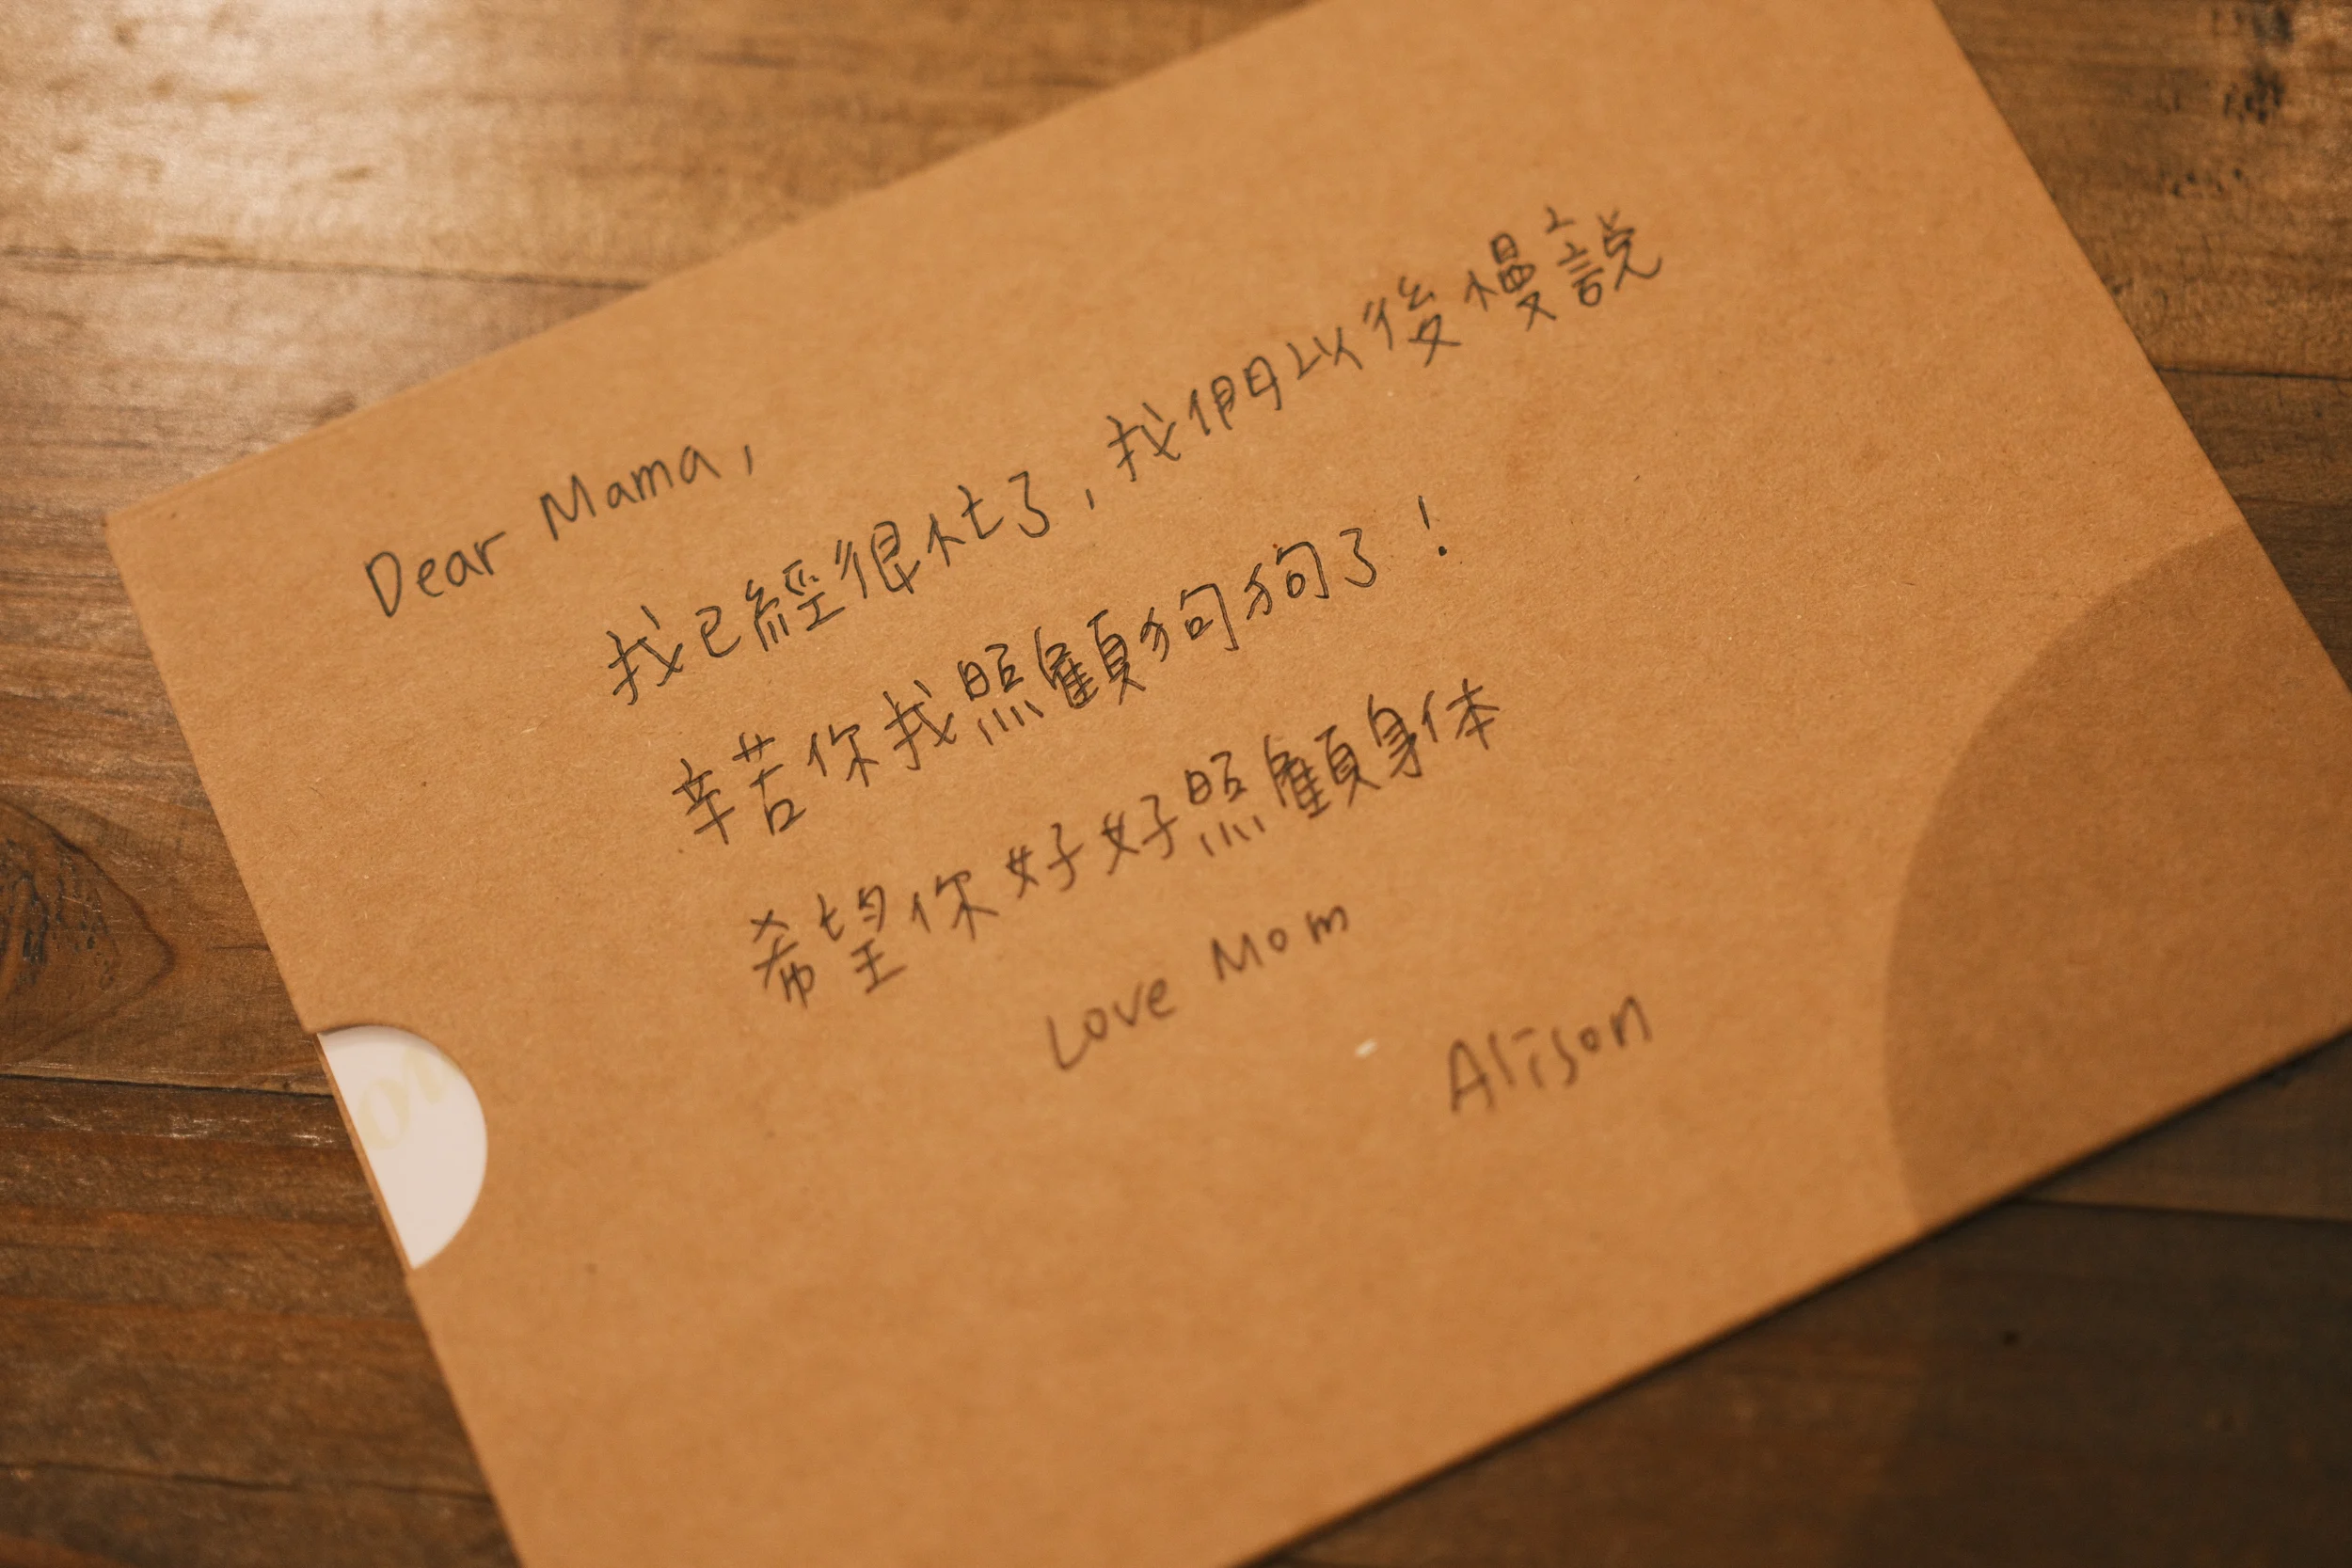 Dear Mama,
我已經很忙了,我們以後慢々說
辛苦你我照顧狗狗了!
希望你好好照顧身体
Love Mom
Alison